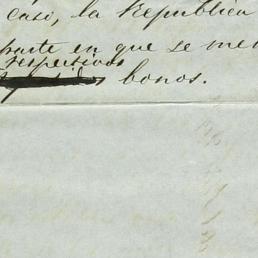 caso, la República
parte en que se me
respectivos
bonos.